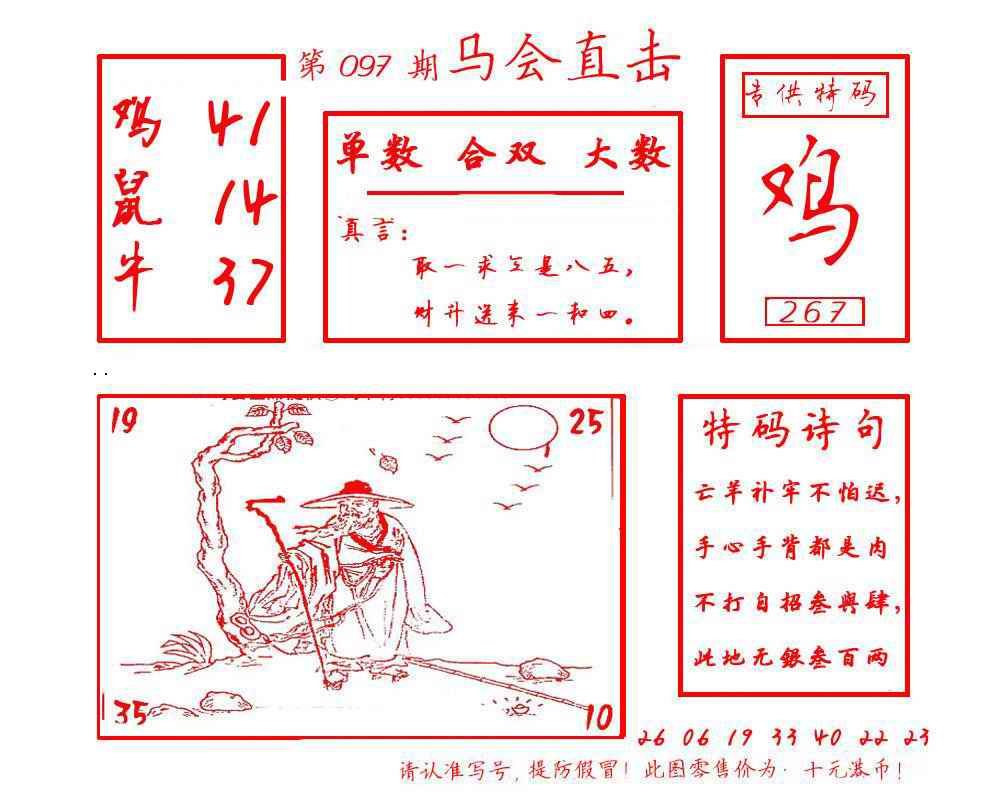 第 097 期 马会直击
鸡 41
鼠 14
牛 37
单数 合双 大数
真言:
取一求三是八五,
财升送来一和四。
专供特码
鸡
267
19
25
35
10
特码诗句
亡羊补牢不怕迟,
手心手背都是肉
不打自招叁与肆,
此地无银叁百两
26 06 19 33 40 22 23
请认准写号,提防假冒!此图零售价为·十元港币!